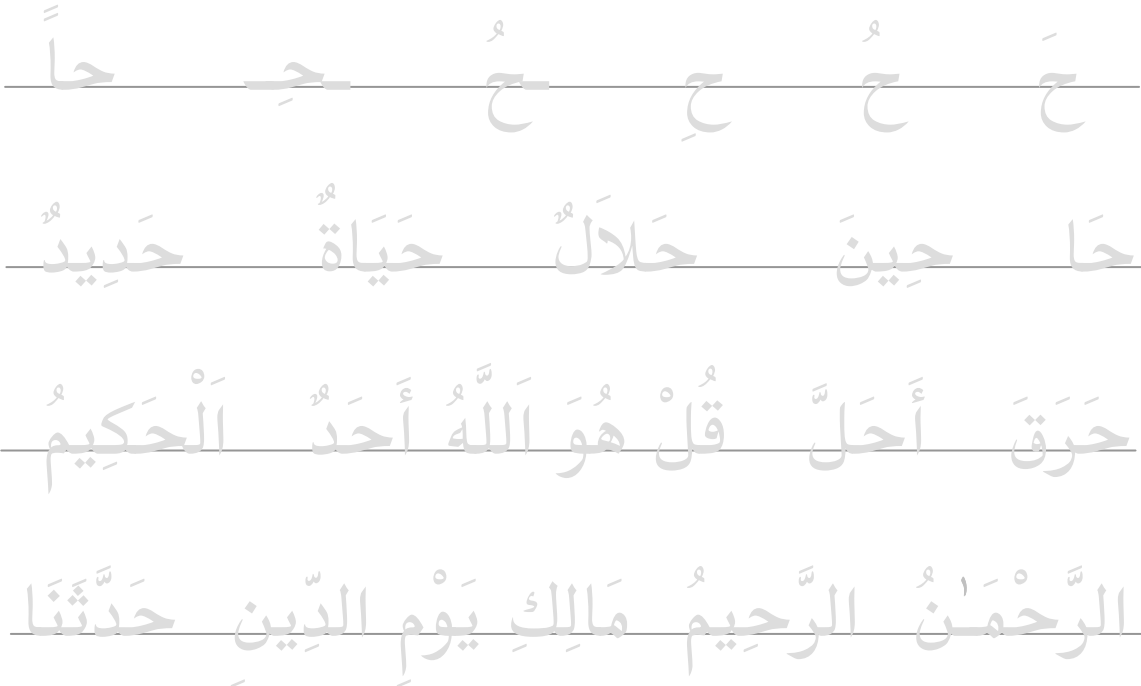 حَ حُ حِ ـحُ ـحِـ حاً
حَا حِينَ حَلاَلٌ حَيَاةٌ حَدِيدٌ
حَرَقَ أَحَلَّ قُلْ هُوَ اَللَّهُ أَحَدٌ اَلْحَكِيمُ
الرَّحْمَـٰنُ الرَّحِيمُ مَالِكِ يَوْمِ الدِّينِ حَدَّثَنَا